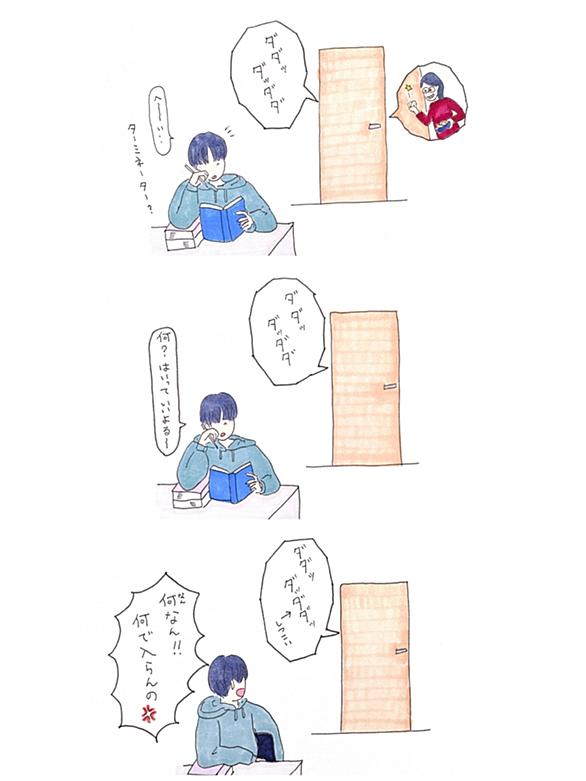 ダダッ
ダッダダ
へーい…
ターミネーター?
ダダッ
ダッダダ
何?はいっていいよる〜
ダダッ
ダッダダッ
→しつこい
何なん!!
なん
何で入らんの